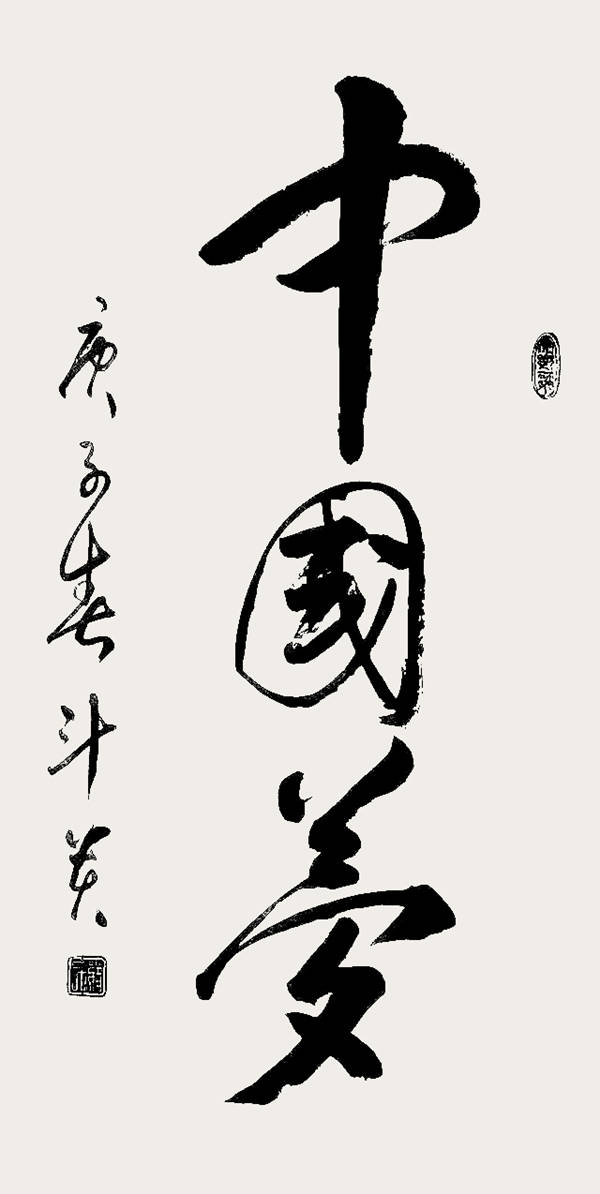 中國夢
庚子春斗英